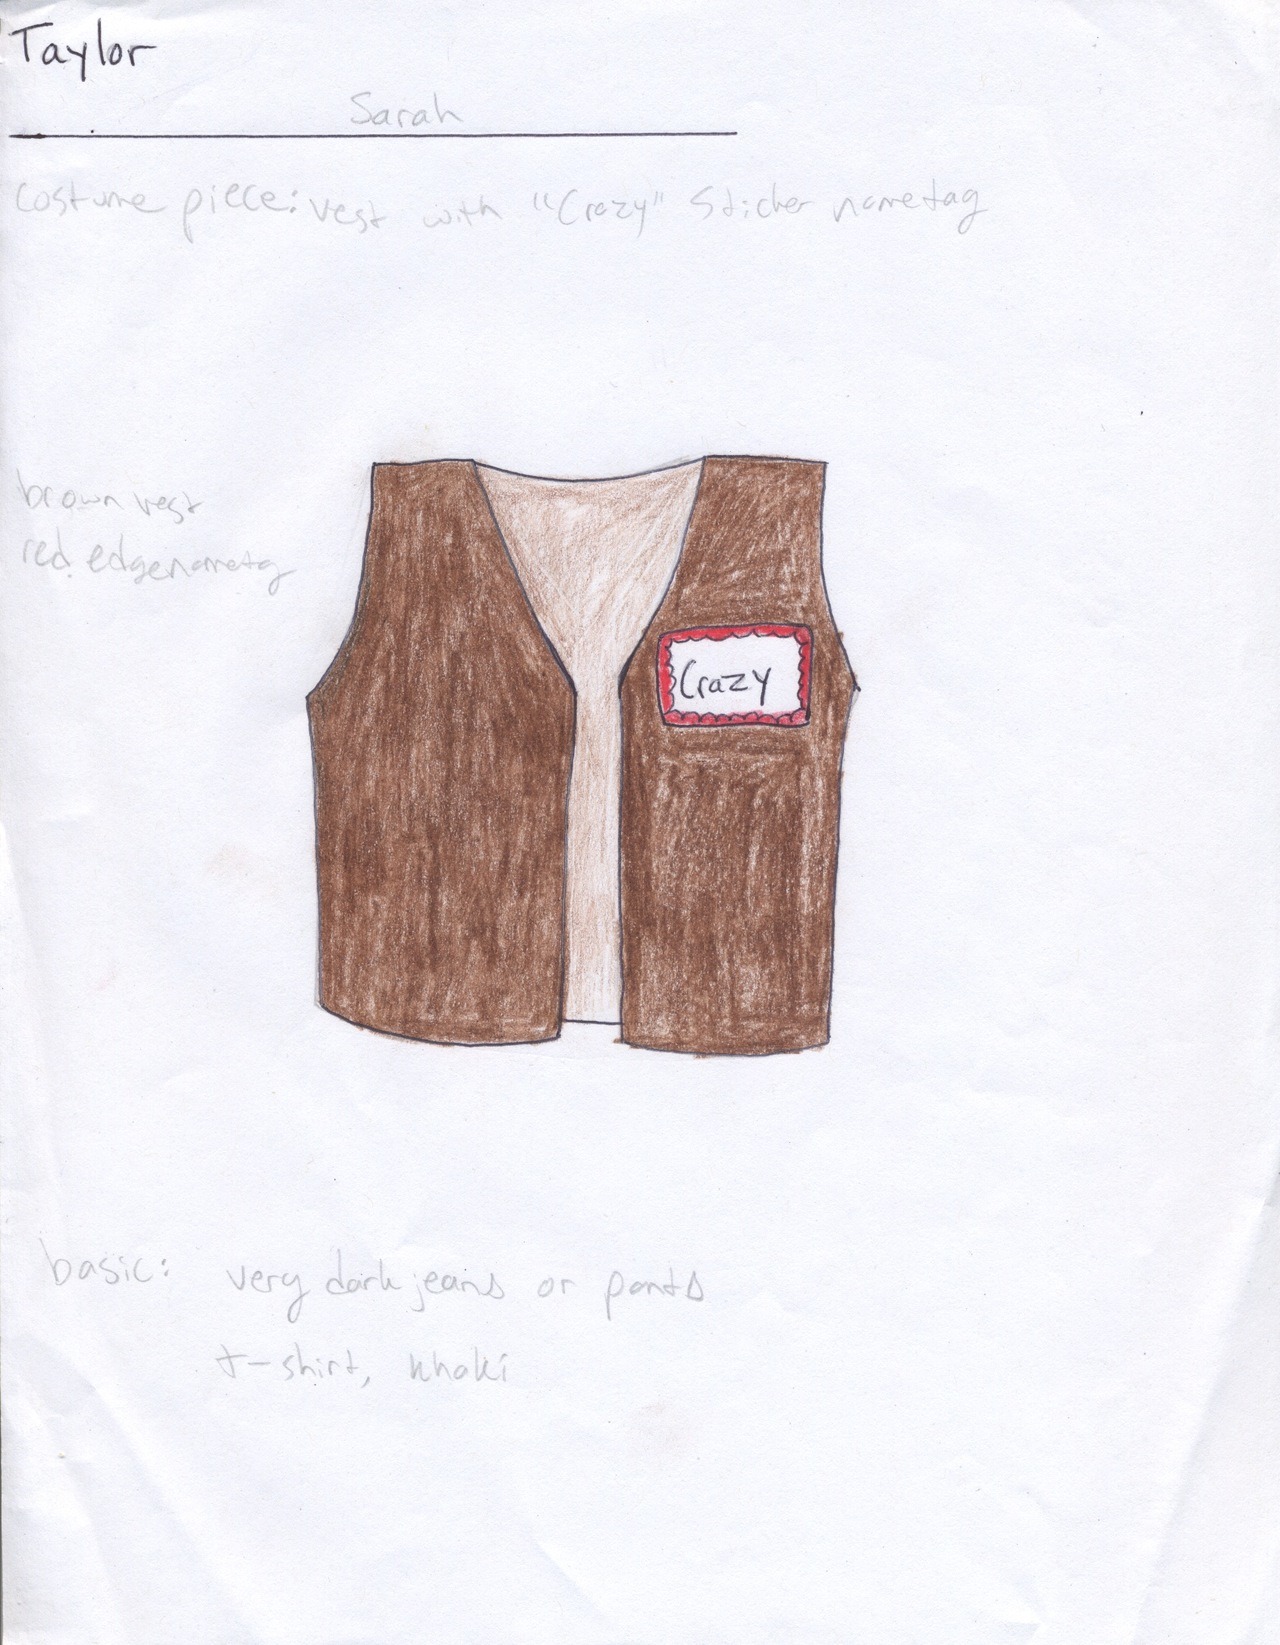 Taylor
Sarah
costume piece: vest with "Crazy" sticker nametag
brown vest
red edge nametg
Crazy
basic: very dark jeans or pants
t-shirt, khaki